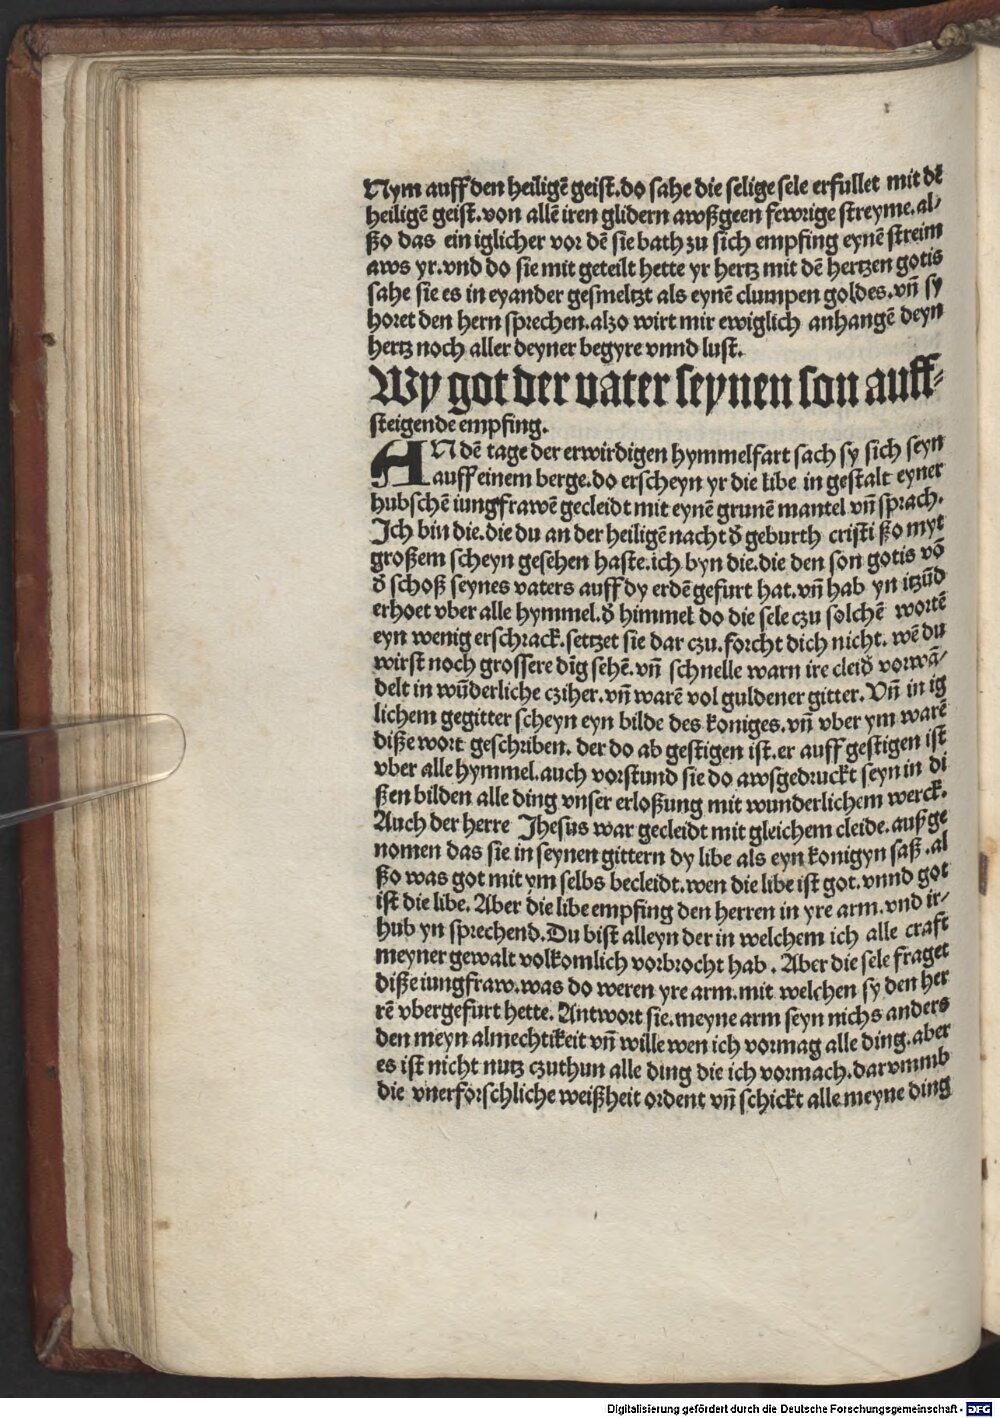 Nym auff den heiligē geist. do sahe die selige sele erfullet mit dē
heiligē geist. von allē iren glidern awßgeen fewrige streyme. al⸗
ßo das ein iglicher vor dē sie bath zu sich empfing eynē streim
aws yr. vnd do sie mit geteilt hette yr hertz mit dē hertzen gotis
sahe sie es in eyander gesmeltzt als eynē clumpen goldes. vn̄ sy
horet den hern sprechen. alzo wirt mir ewiglich anhangē deyn
hertz noch aller deyner begyre vnnd lust.
Wy got der vater seynen son auff⸗
steigende empfing.
AN dē tage der erwirdigen hymmelfart sach sy sich seyn
auff einem berge. do erscheyn yr die libe in gestalt eyner
hubschē iungfrawē gecleidt mit eynē grunē mantel vn̄ sprach.
Ich bin die. die du an der heiligē nacht d̄ geburth cristi ßo myt
großem scheyn gesehen haste. ich byn die. die den son gotis vō
d̄ schoß seynes vaters auff dy erdē gefurt hat. vn̄ hab yn itzūd
erhoet vber alle hymmel. d̄ himmel do die sele czu solchē wortē
eyn wenig erschrack. settzet sie dar czu. forcht dich nicht. wē du
wirst noch grossere dīg sehē. vn̄ schnelle warn ire cleid̄ vorwā⸗
delt in wūderliche cziher. vn̄ warē vol guldener gitter. Vn̄ in ig
lichem gegitter scheyn eyn bilde des koniges. vn̄ vber ym warē
diße wort geschriben. der do ab gestigen ist. er auff gestigen ist
vber alle hymmel. auch vorstund sie do awsgedruckt seyn in di
ßen bilden alle ding vnser erloßung mit wunderlichem werck.
Auch der herre Jhesus war gecleidt mit gleichem cleide. auß ge
nomen das sie in seynen gittern dy libe als eyn konigyn saß. al
ßo was got mit ym selbs becleidt. wen die libe ist got. vnnd got
ist die libe. Aber die libe empfing den herren in yre arm. vnd ir⸗
hub yn sprechend. Du bist alleyn der in welchem ich alle craft
meyner gewalt volkomlich vorbrocht hab. Aber die sele fraget
diße iungfraw. was do weren yre arm. mit welchen sy den her
rē vbergefurt hette. Antwort sie. meyne arm seyn nichs anders
den meyn almechtikeit vn̄ wille wen ich vormag alle ding. aber
es ist nicht nutz czuthun alle ding die ich vormach. darvmmb
die vnerforschliche weißheit ordent vn̄ schickt alle meyne ding
Digitalisierung gefördert durch die Deutsche Forschungsgemeinschaft - DFG